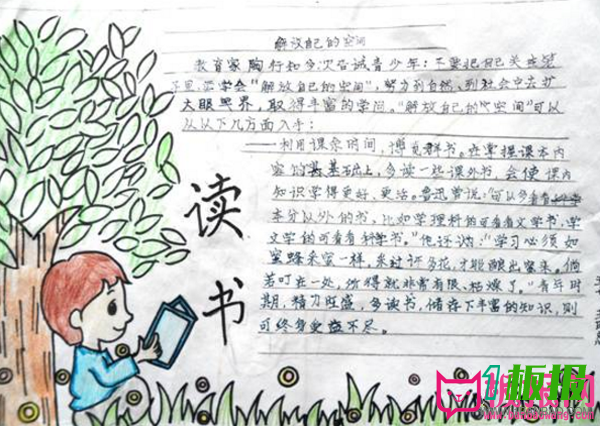 解放自己的空间
教育家陶行知多次告诫青少年：不要把自己关在笼
子里，要学会“解放自己的空间”，努力到自然、到社会中去扩
大眼界，取得丰富的学问。“解放自己的空间”可以
从从以下几方面入手：
一利用课余时间，博览群书。在掌握课本内
容的基础上，多读一些课外书，会使课内
知识学得更好、更活。鲁迅曾说：“可以多看看
本分以外的书，比如学理科的可看看文学书，学
文学的可看看科学书。”他还说：“学习必须如
蜜蜂采蜜一样，采过许多花，才能酿出蜜来。倘
若叮在一处，所得就非常有限、枯燥了。”青年时
期，精力旺盛，多读书，储存下丰富的知识，则
可终身受益不尽。
读书